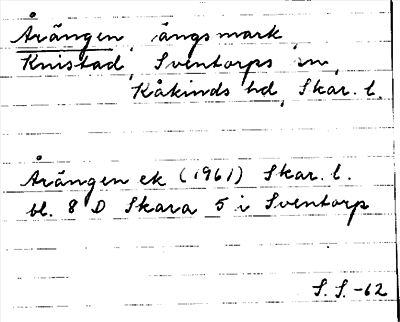 Årängen, ängsmark,
Knistad, Sventorps sn,
Kåkinds hd, Skar. l.
Årängen ek (1961) Skar. l.
bl. 8 D Skara 5 i Sventorp
S. S. -62